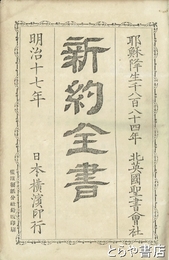 耶穌降生千八百八十四年
北英國聖書會社
新約全書
明治十七年
日本橫濱印行
とらや書房